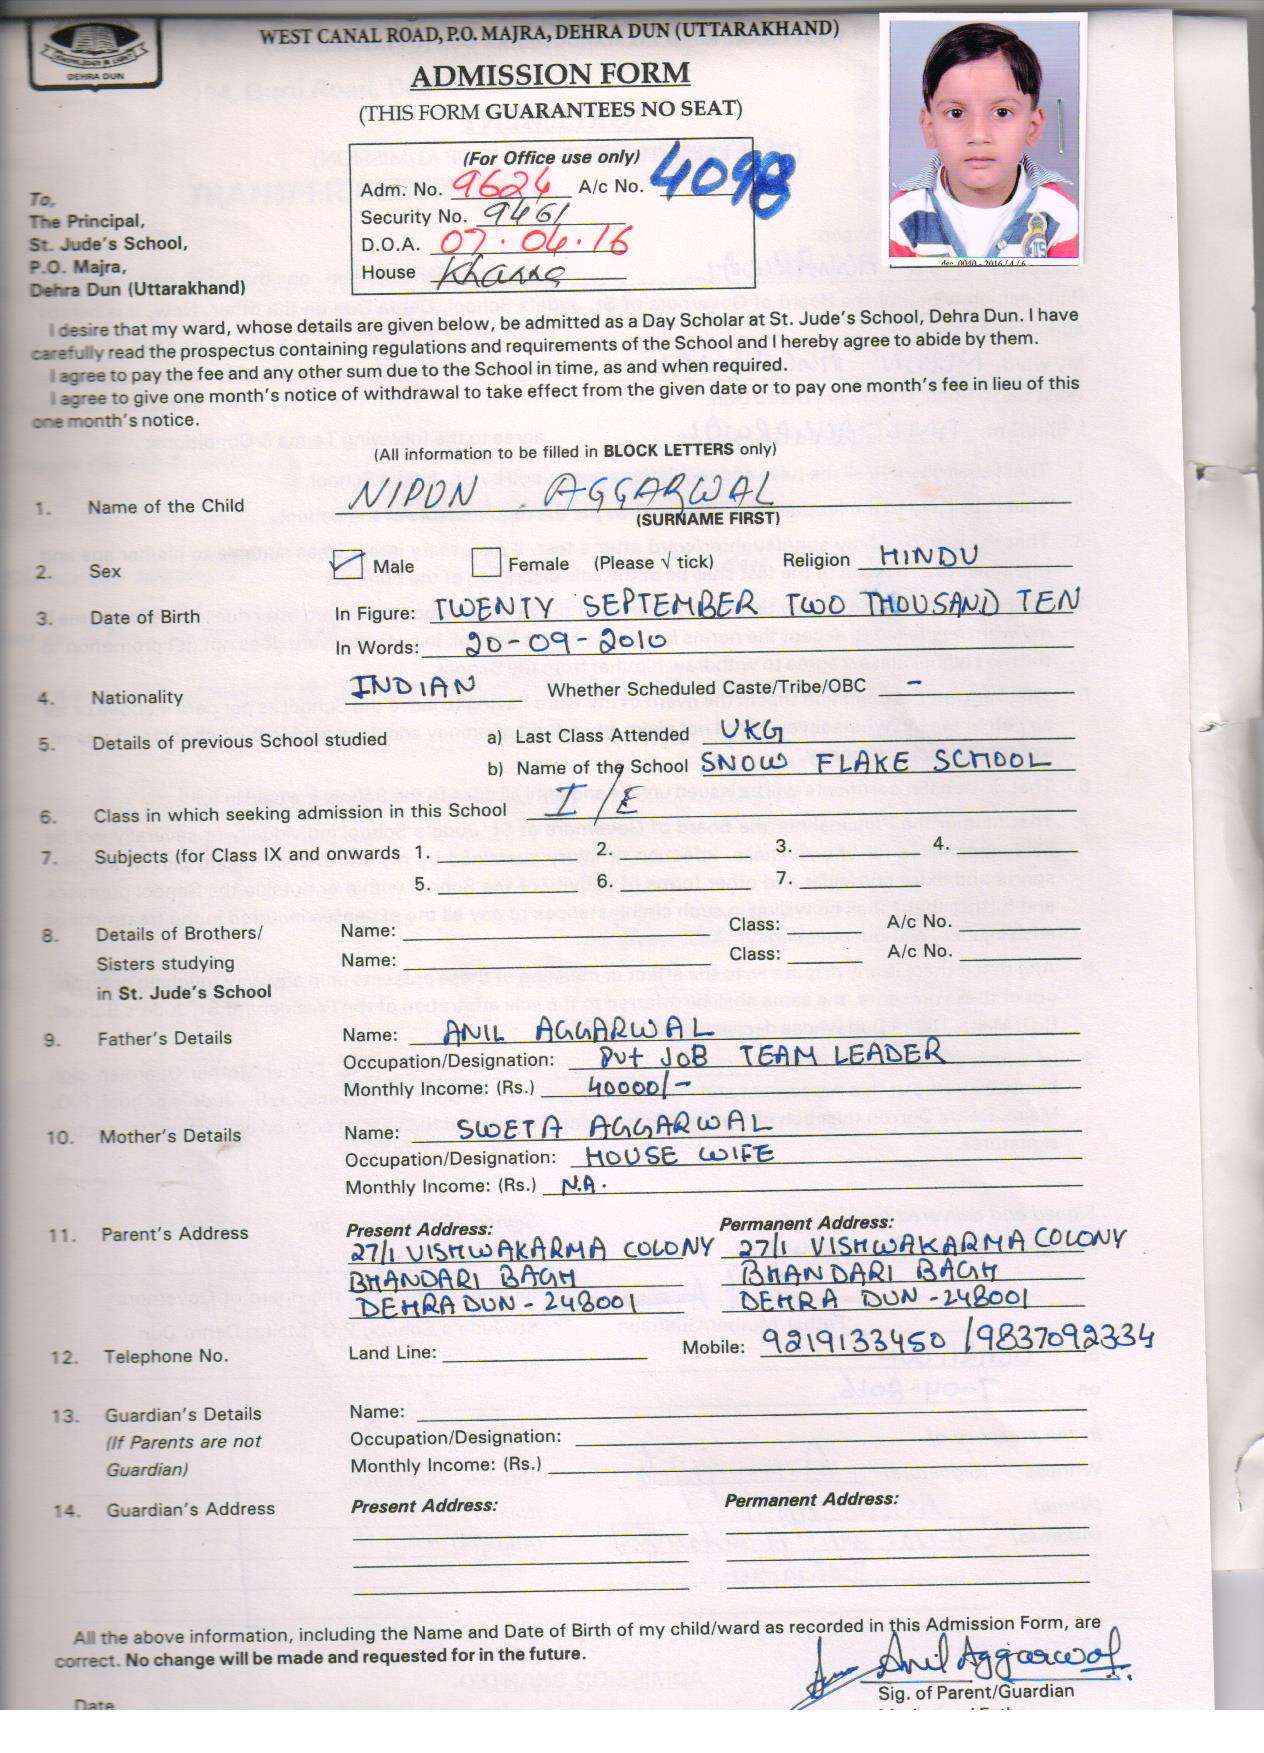 KNOWLEDGE & LIGHT
DEHRA DUN
WEST CANAL ROAD, P.O. MAJRA, DEHRA DUN (UTTARAKHAND)
ADMISSION FORM
(THIS FORM GUARANTEES NO SEAT)
(For Office use only)
Adm. No. 9624 A/c No. 4098
Security No. 9461
D.O.A. 07.04.16
House Khanna
To,
The Principal,
St. Jude's School,
P.O. Majra,
Dehra Dun (Uttarakhand)
I desire that my ward, whose details are given below, be admitted as a Day Scholar at St. Jude's School, Dehra Dun. I have
carefully read the prospectus containing regulations and requirements of the School and I hereby agree to abide by them.
I agree to pay the fee and any other sum due to the School in time, as and when required.
I agree to give one month's notice of withdrawal to take effect from the given date or to pay one month's fee in lieu of this
one month's notice.
(All information to be filled in BLOCK LETTERS only)
1. Name of the Child NIPUN AGGARWAL
(SURNAME FIRST)
2. Sex Male Female (Please √ tick) Religion HINDU
3. Date of Birth In Figure: TWENTY SEPTEMBER TWO THOUSAND TEN
In Words: 20-09-2010
4. Nationality INDIAN Whether Scheduled Caste/Tribe/OBC -
5. Details of previous School studied a) Last Class Attended UKG
b) Name of the School SNOW FLAKE SCHOOL
6. Class in which seeking admission in this School I/E
7. Subjects (for Class IX and onwards 1. 2. 3. 4.
5. 6. 7.
8. Details of Brothers/ Name: Class: A/c No.
Sisters studying Name: Class: A/c No.
in St. Jude's School
9. Father's Details Name: ANIL AGGARWAL
Occupation/Designation: Pvt JOB TEAM LEADER
Monthly Income: (Rs.) 40000/-
10. Mother's Details Name: SWETA AGGARWAL
Occupation/Designation: HOUSE WIFE
Monthly Income: (Rs.) N.A.
11. Parent's Address Present Address: Permanent Address:
27/1 VISHWAKARMA COLONY 27/1 VISHWAKARMA COLONY
BHANDARI BAGH BHANDARI BAGH
DEHRADUN - 248001 DEHRA DUN - 248001
12. Telephone No. Land Line: Mobile: 9219133450 / 9837092334
13. Guardian's Details Name:
(If Parents are not Occupation/Designation:
Guardian) Monthly Income: (Rs.)
14. Guardian's Address Present Address: Permanent Address:
All the above information, including the Name and Date of Birth of my child/ward as recorded in this Admission Form, are
correct. No change will be made and requested for in the future.
Anil Aggarwal
Sig. of Parent/Guardian
Date